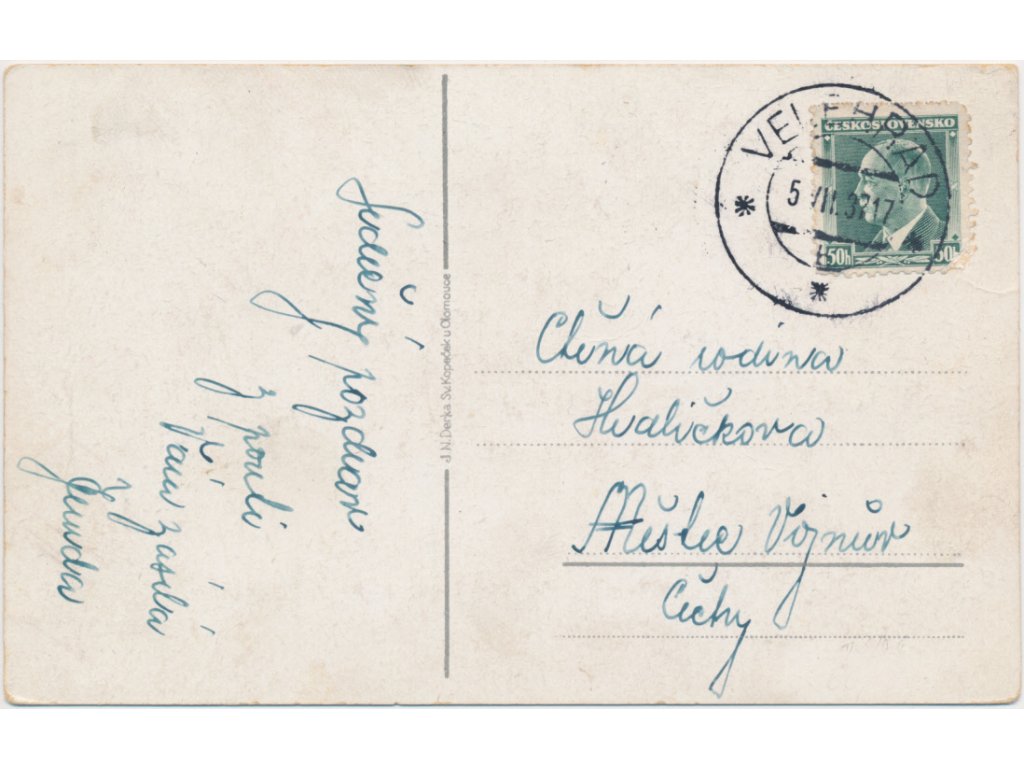 Srdečný pozdrav
z pouti
Vám zasílá
J. N. Derka Sv. Kopeček u Olomouce
VELEHRAD
5 VII. 37 17
b
ČESKOSLOVENSKO
50h 50h
Ctěná rodina
Hvaličkova
Městec Vojnův
Čechy